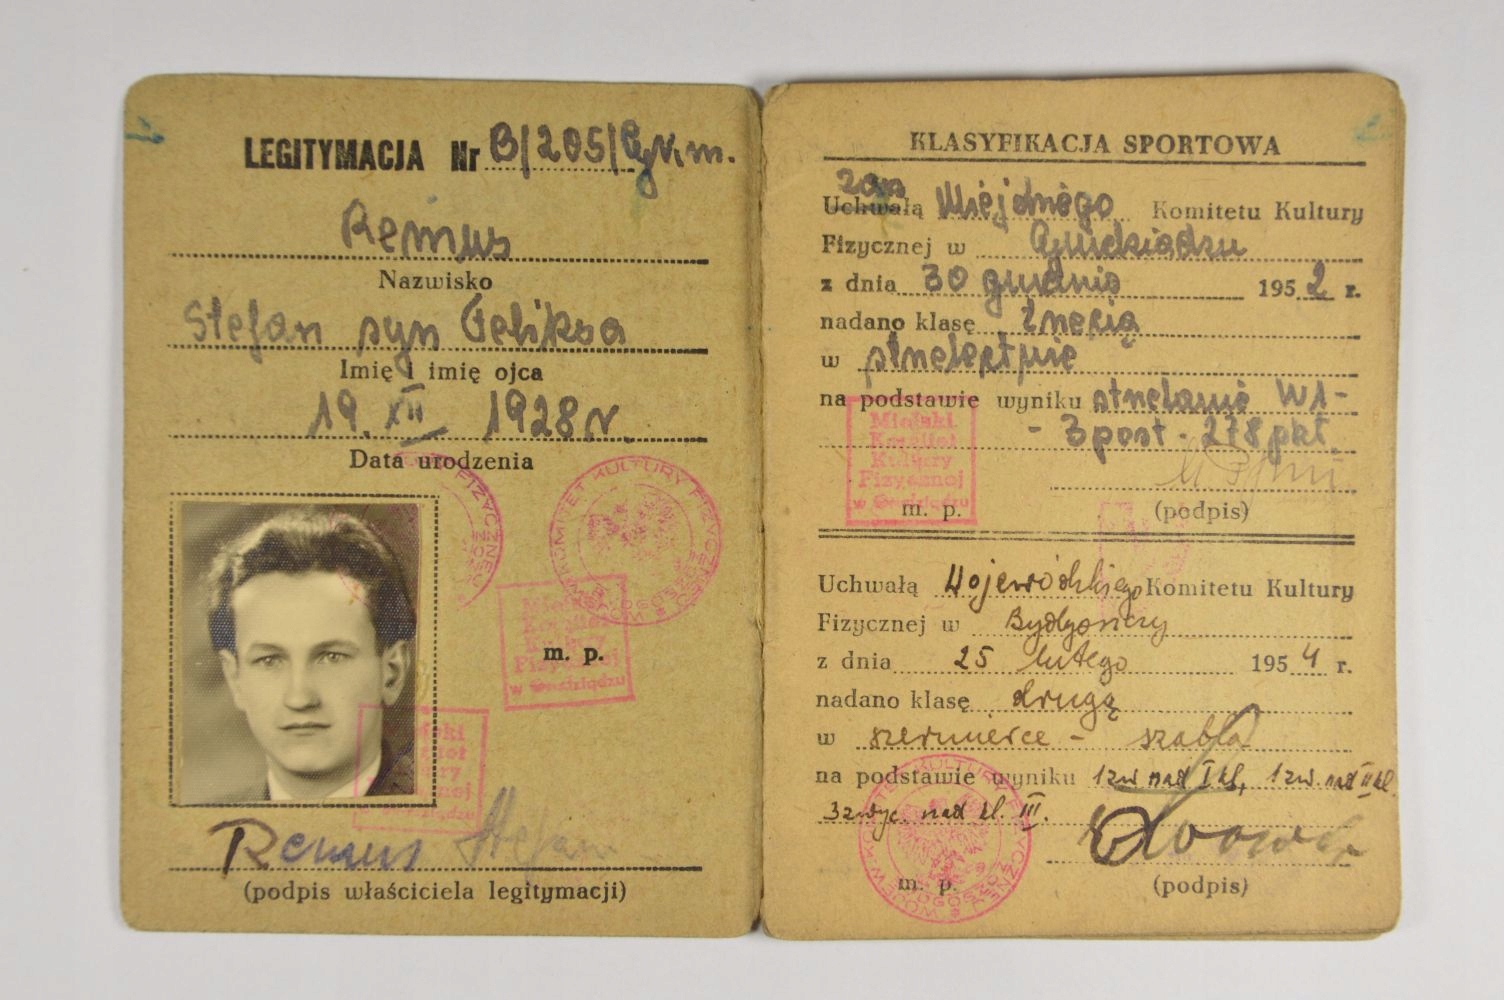 LEGITYMACJA Nr B/205/Grm.
Remus
Nazwisko
Stefan syn Feliksa
Imię i imię ojca
19. XII 1928 r.
Data urodzenia
KOMITET KULTURY FIZYCZNEJ
Miejski
Komitet
Kultury
Fizycznej
w Grudziądzu
m. p.
Remus Stefan
(podpis właściciela legitymacji)
KLASYFIKACJA SPORTOWA
Uchwałą Miejskiego Komitetu Kultury
Fizycznej w Grudziądzu
z dnia 30 grudnia 1952 r.
nadano klasę trzecią
w strzelectwie
na podstawie wyniku strzelanie W1-
- 3 post - 278 pkt
Miejski
Komitet
Kultury
Fizycznej
w Grudziądzu
m. p.
(podpis)
Uchwałą Wojewódzkiego Komitetu Kultury
Fizycznej w Bydgoszczy
z dnia 25 lutego 1954 r.
nadano klasę drugą
w szermierce - szabla
na podstawie wyniku 1zw nad I kl, 1zw. nad II kl.
3zwyc. nad kl. III.
m. p.
(podpis)